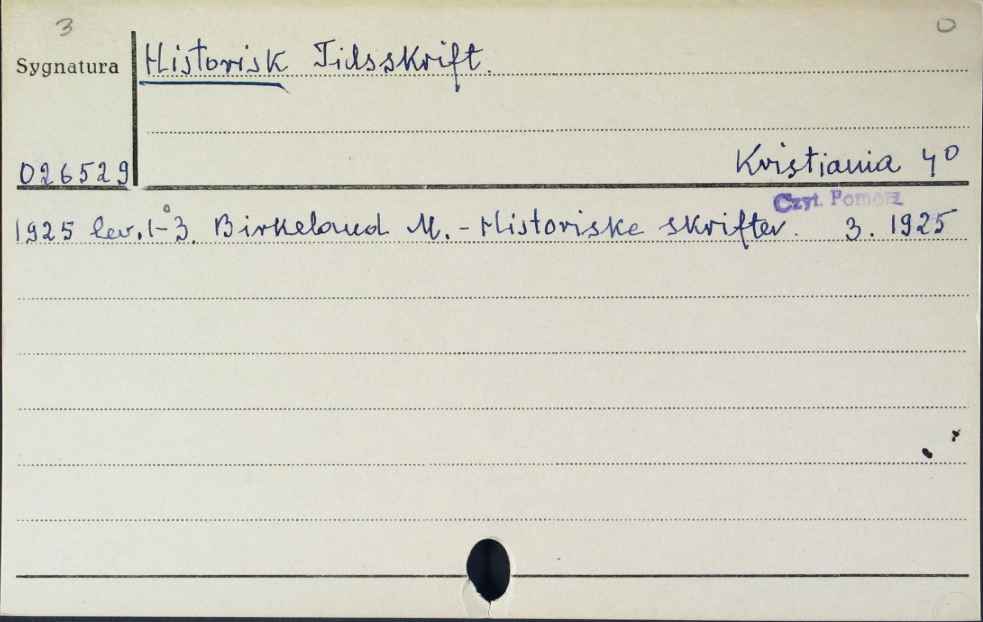 3
0
Sygnatura Historisk Tidsskrift.
026529 Kristiania 4⁰
Czyt. Pomorz
1925 lev. 1-3. Birkeland M. - Historiske skrifter. 3. 1925